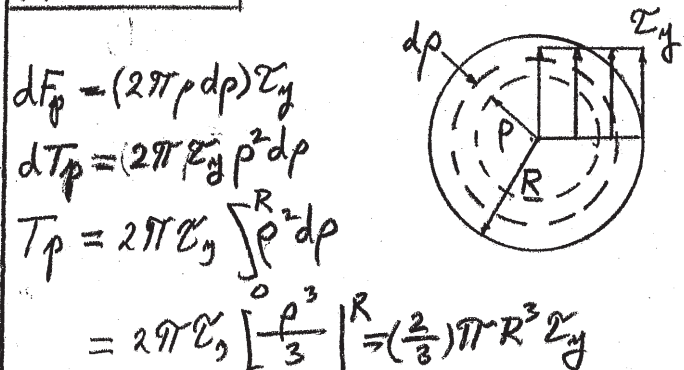 dF_p = (2πρ dρ) τ_y
dT_p = (2π τ_y ρ² dρ
T_p = 2π τ_y ∫₀ᴿ ρ² dρ
= 2π τ_y [ρ³/3 |ᴿ = (2/3) π R³ τ_y
dρ
τ_y
ρ
R